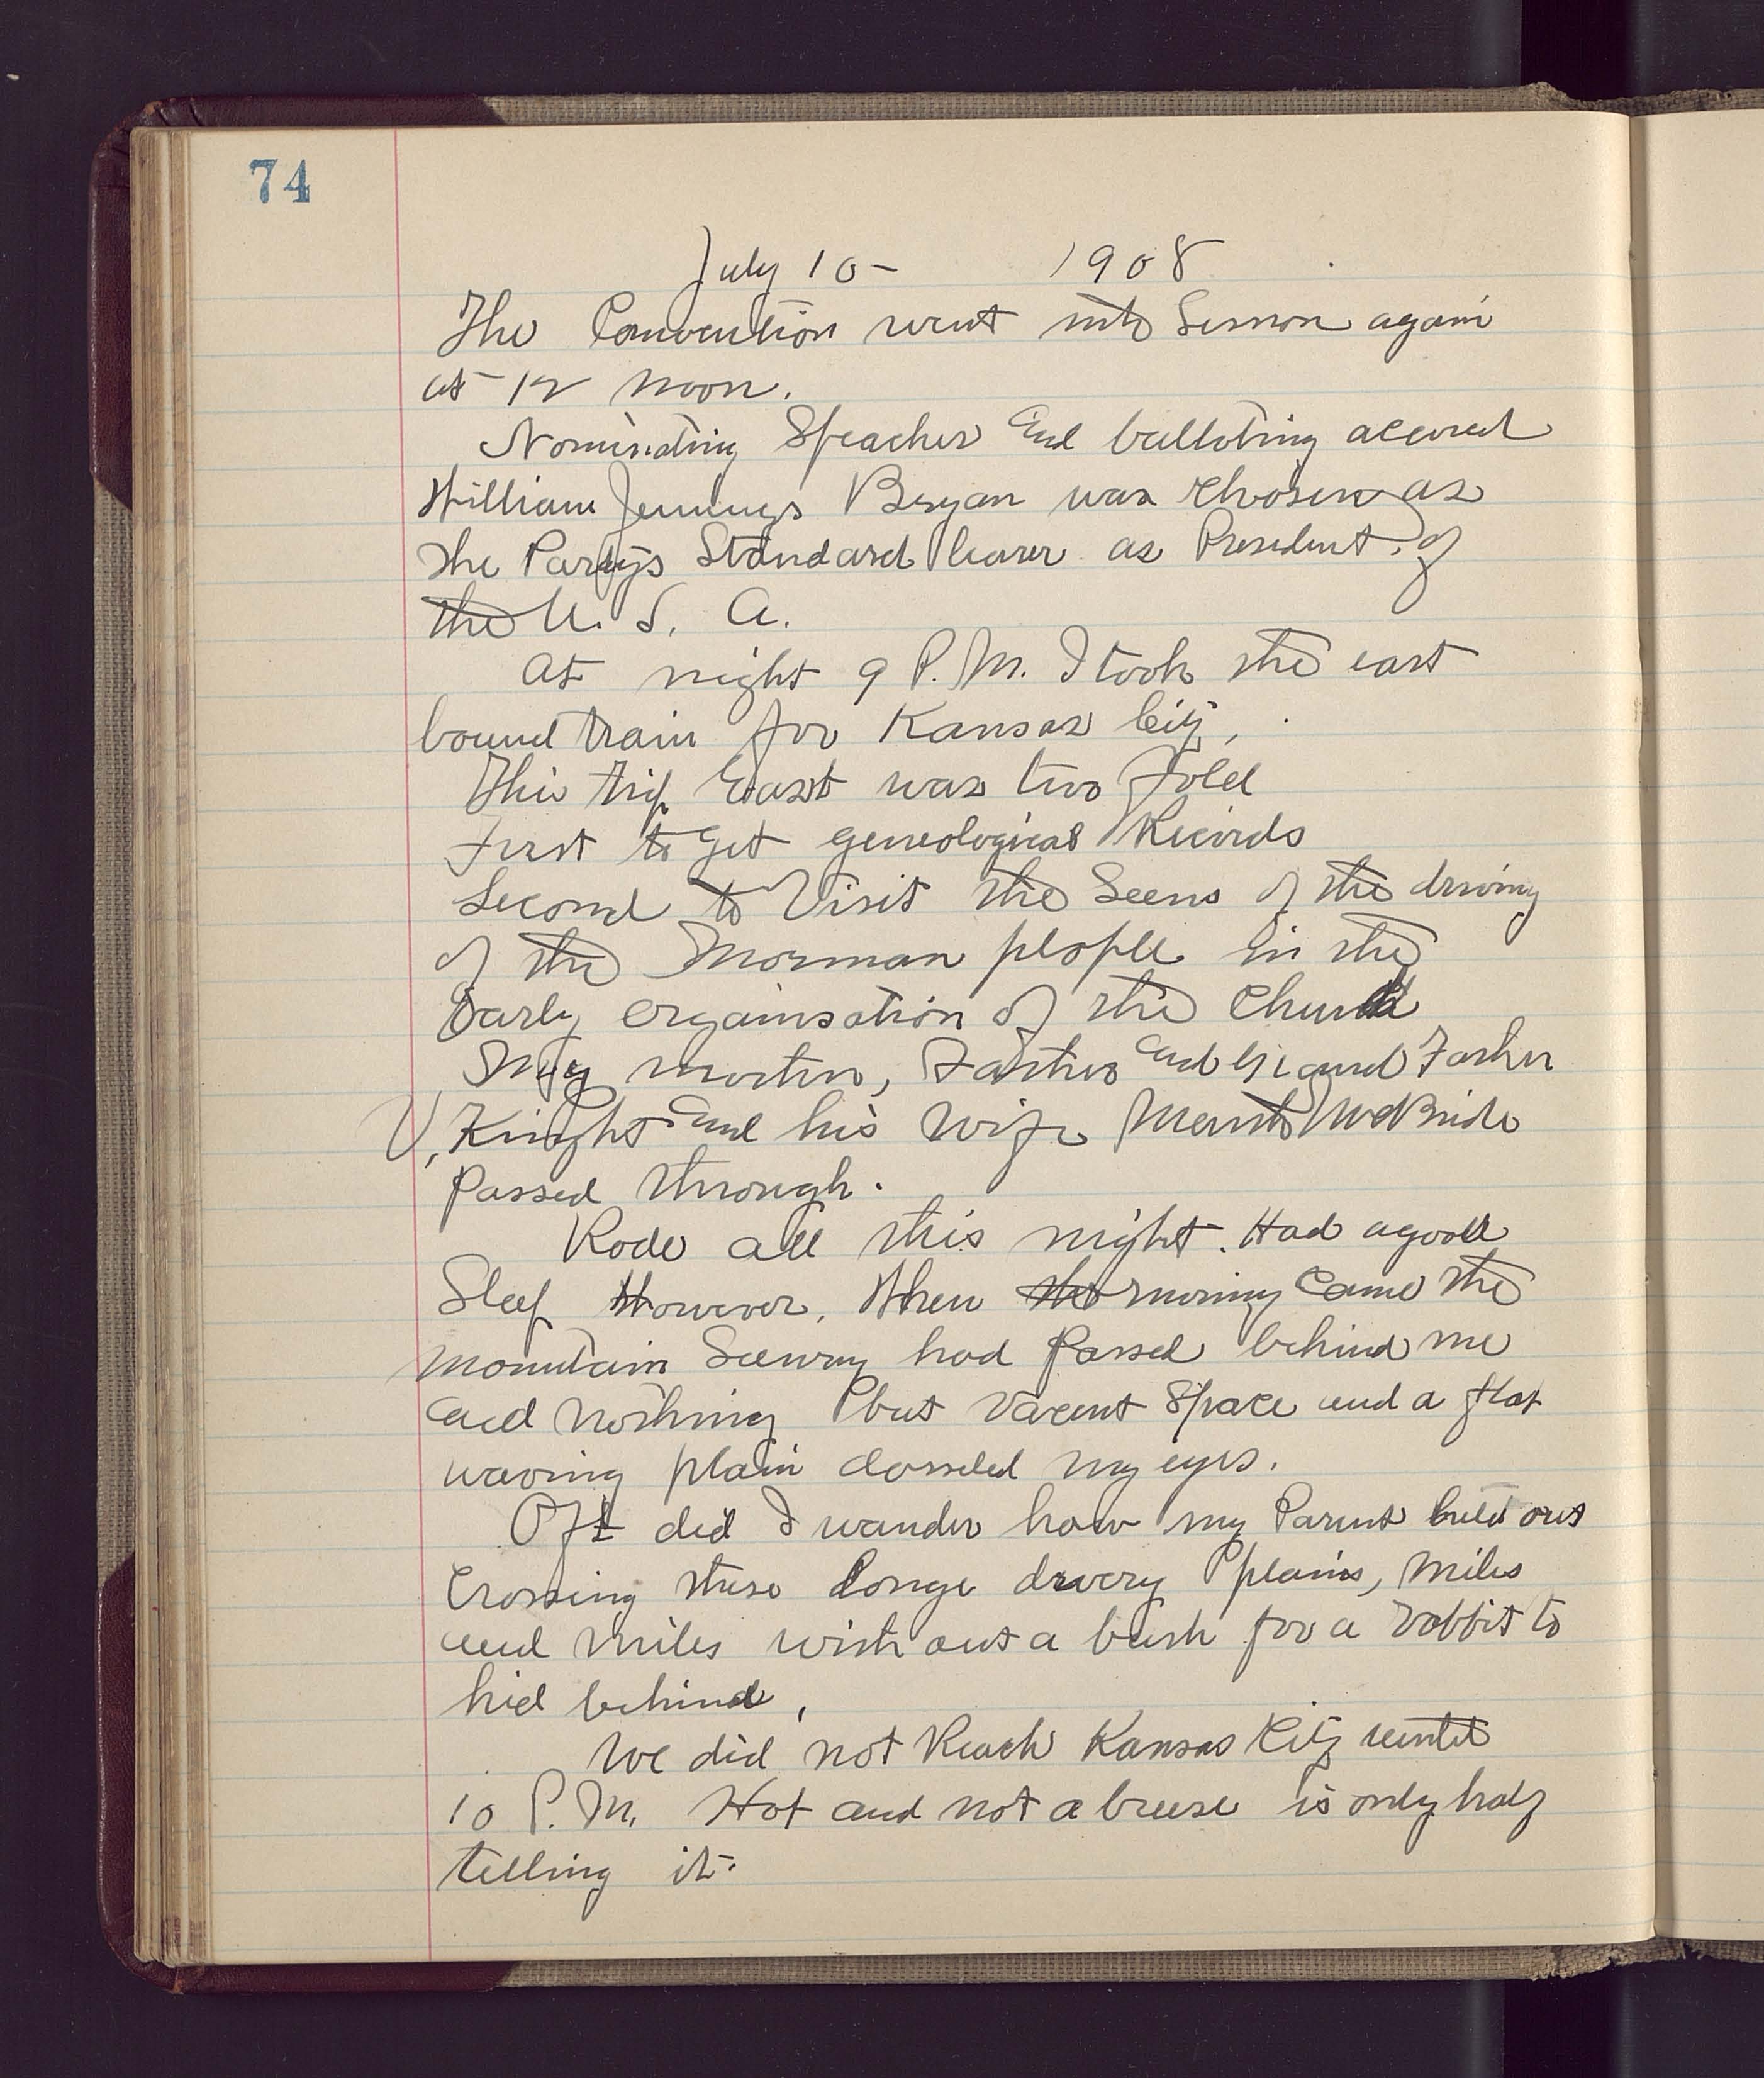 74
July 10- 1908
The Convention went into Session again
at 12 noon.
Nominating Speaches and balloting accured
William Jennings Bryan was choosen as
the Partys Standard bearer as President of
the U. S. A.
At night 9 P.M. I took the east
bound train for Kansas City,
This trip East was two fold
First to get geneological Records
Second to Visit the Seens of the driving
of the Morman people in the
Early organisation of the Church
My Mother, Father and Grand Father
V. Knight and his Wife McBride
passed through.
Rode all this night. Had a good
Sleep However. When the morning came the
mountain Scenery had passed behind me
and nothing but Vacent Space and a flat
waving plain dosseled my eyes.
Oft did I wander how my Parent held out
Crossing these longe drery plains, Miles
and miles with out a bush for a rabbit to
hid behind,
We did not Reach Kansas City until
10 P.M. Hot and not a breese is only half
telling it.